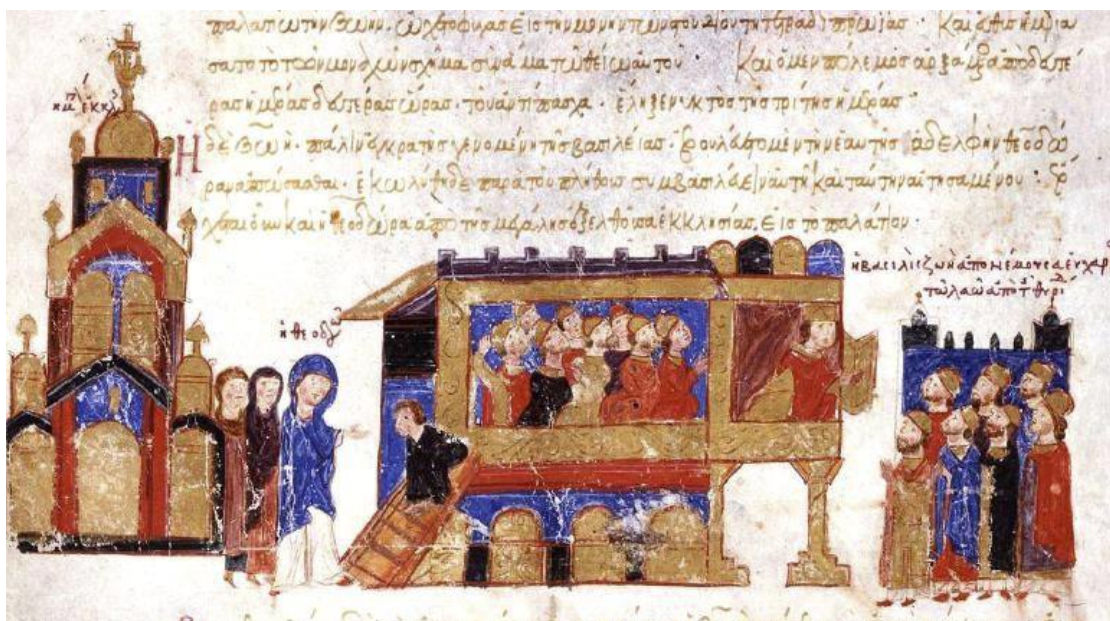 παλατίω τὴν ζωὴν. εἰς τὴν μονὴν τῶν στουδίου τῇ τετράδι πρωίας. Καὶ
σατο τὸ τῶν μοναχῶν σχῆμα σὺν ἅμα τῶ θείω αὐτοῦ. Καὶ ὁ μὲν πόλεμος ἀρξάμενος ἀπὸ δευτέ
ρας ἡμέρας δευτέρας ὥρας. τοῦ ἀντίπασχα. ἔληξε νυκτὸς τῆς τρίτης ἡμέρας.
Ἡ δὲ ζωὴ. πάλιν ἐγκρατὴς γενομένη τῆς βασιλείας. βουλευσαμένη τὴν ἑαυτῆς ἀδελφὴν θεοδώ
ραν ἀπώσασθαι. ἐκωλύθη δὲ παρὰ τοῦ πλήθους συμβασιλεύειν αὐτῇ καὶ ταύτην αἰτησαμένου. ἔρ
χεται οὖν καὶ ἡ θεοδώρα ἀπὸ τῆς μεγάλης ἐξελθοῦσα ἐκκλησίας εἰς τὸ παλάτιον.
ἐκκλ
ἡ θεοδώ
ἡ βασιλὶς ζωὴ ἀπονέμουσα εὐχαρ
τῶ λαῶ ἀπὸ τ θυρί